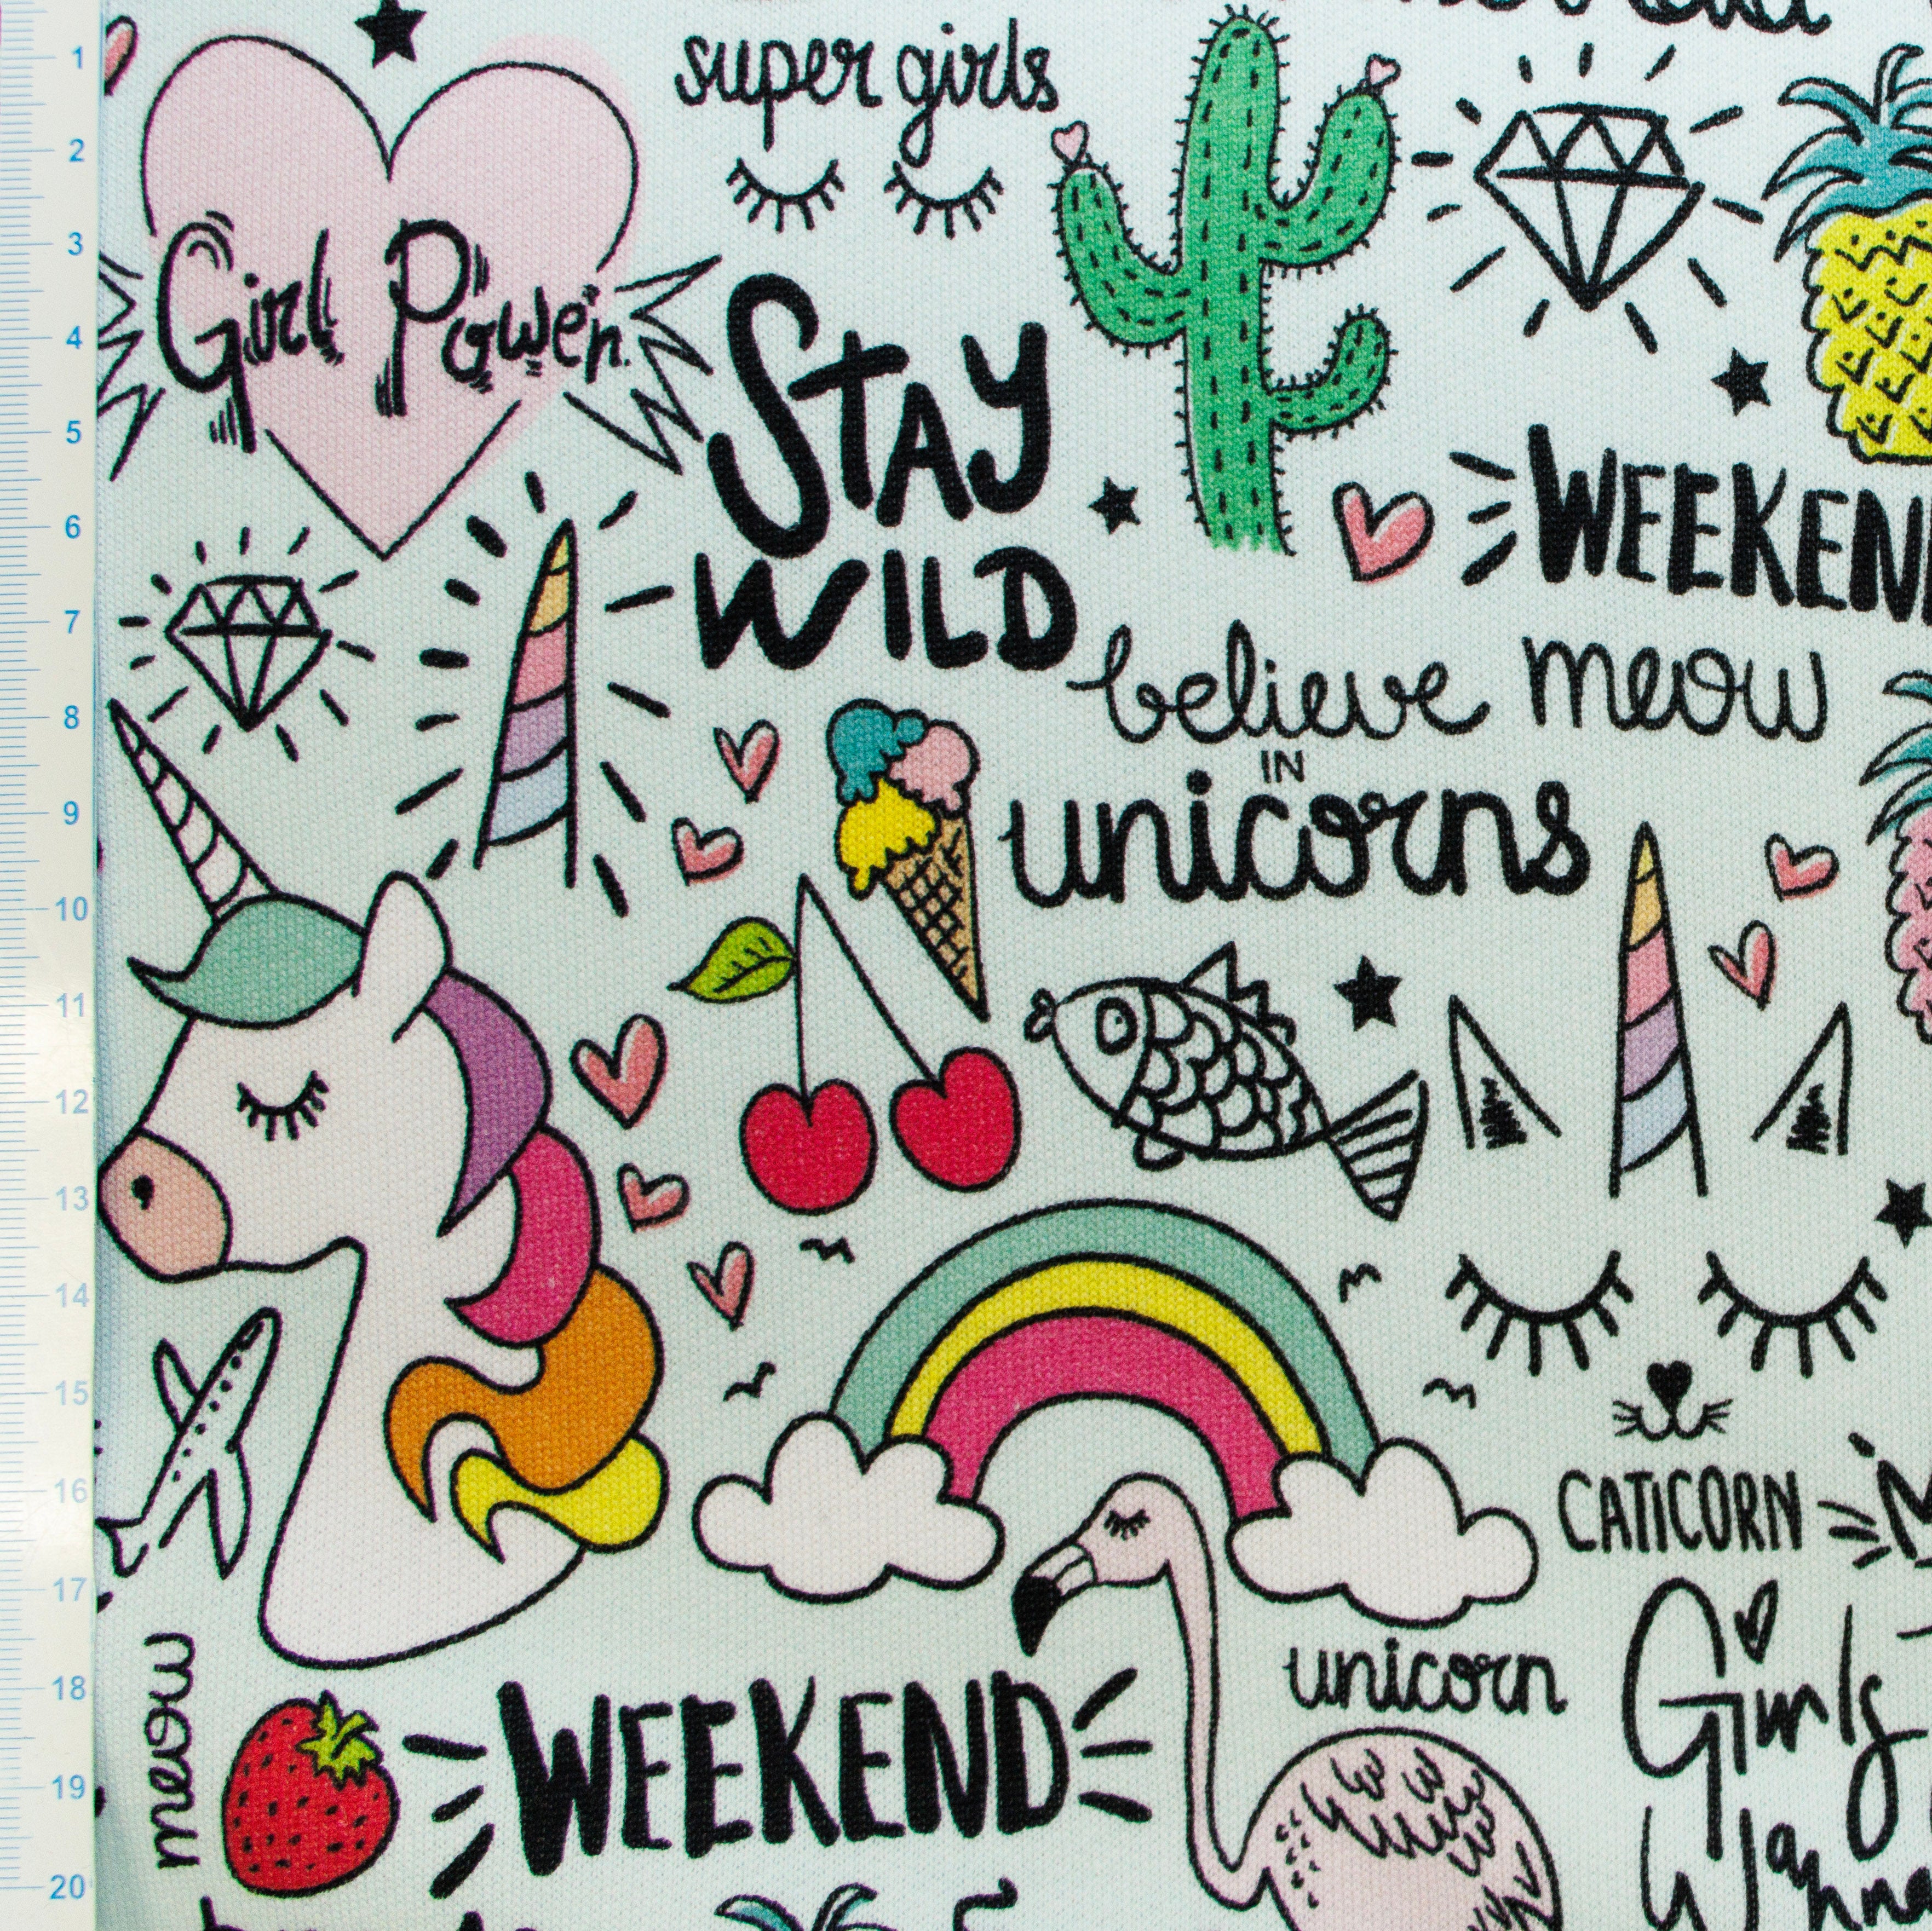 super girls
Girl Power
STAY
WILD
WEEKEN
believe
meow
IN
unicorns
CATICORN
unicorn
meow
WEEKEND
Girls
Wanna
1
2
3
4
5
6
7
8
9
10
11
12
13
14
15
16
17
18
19
20